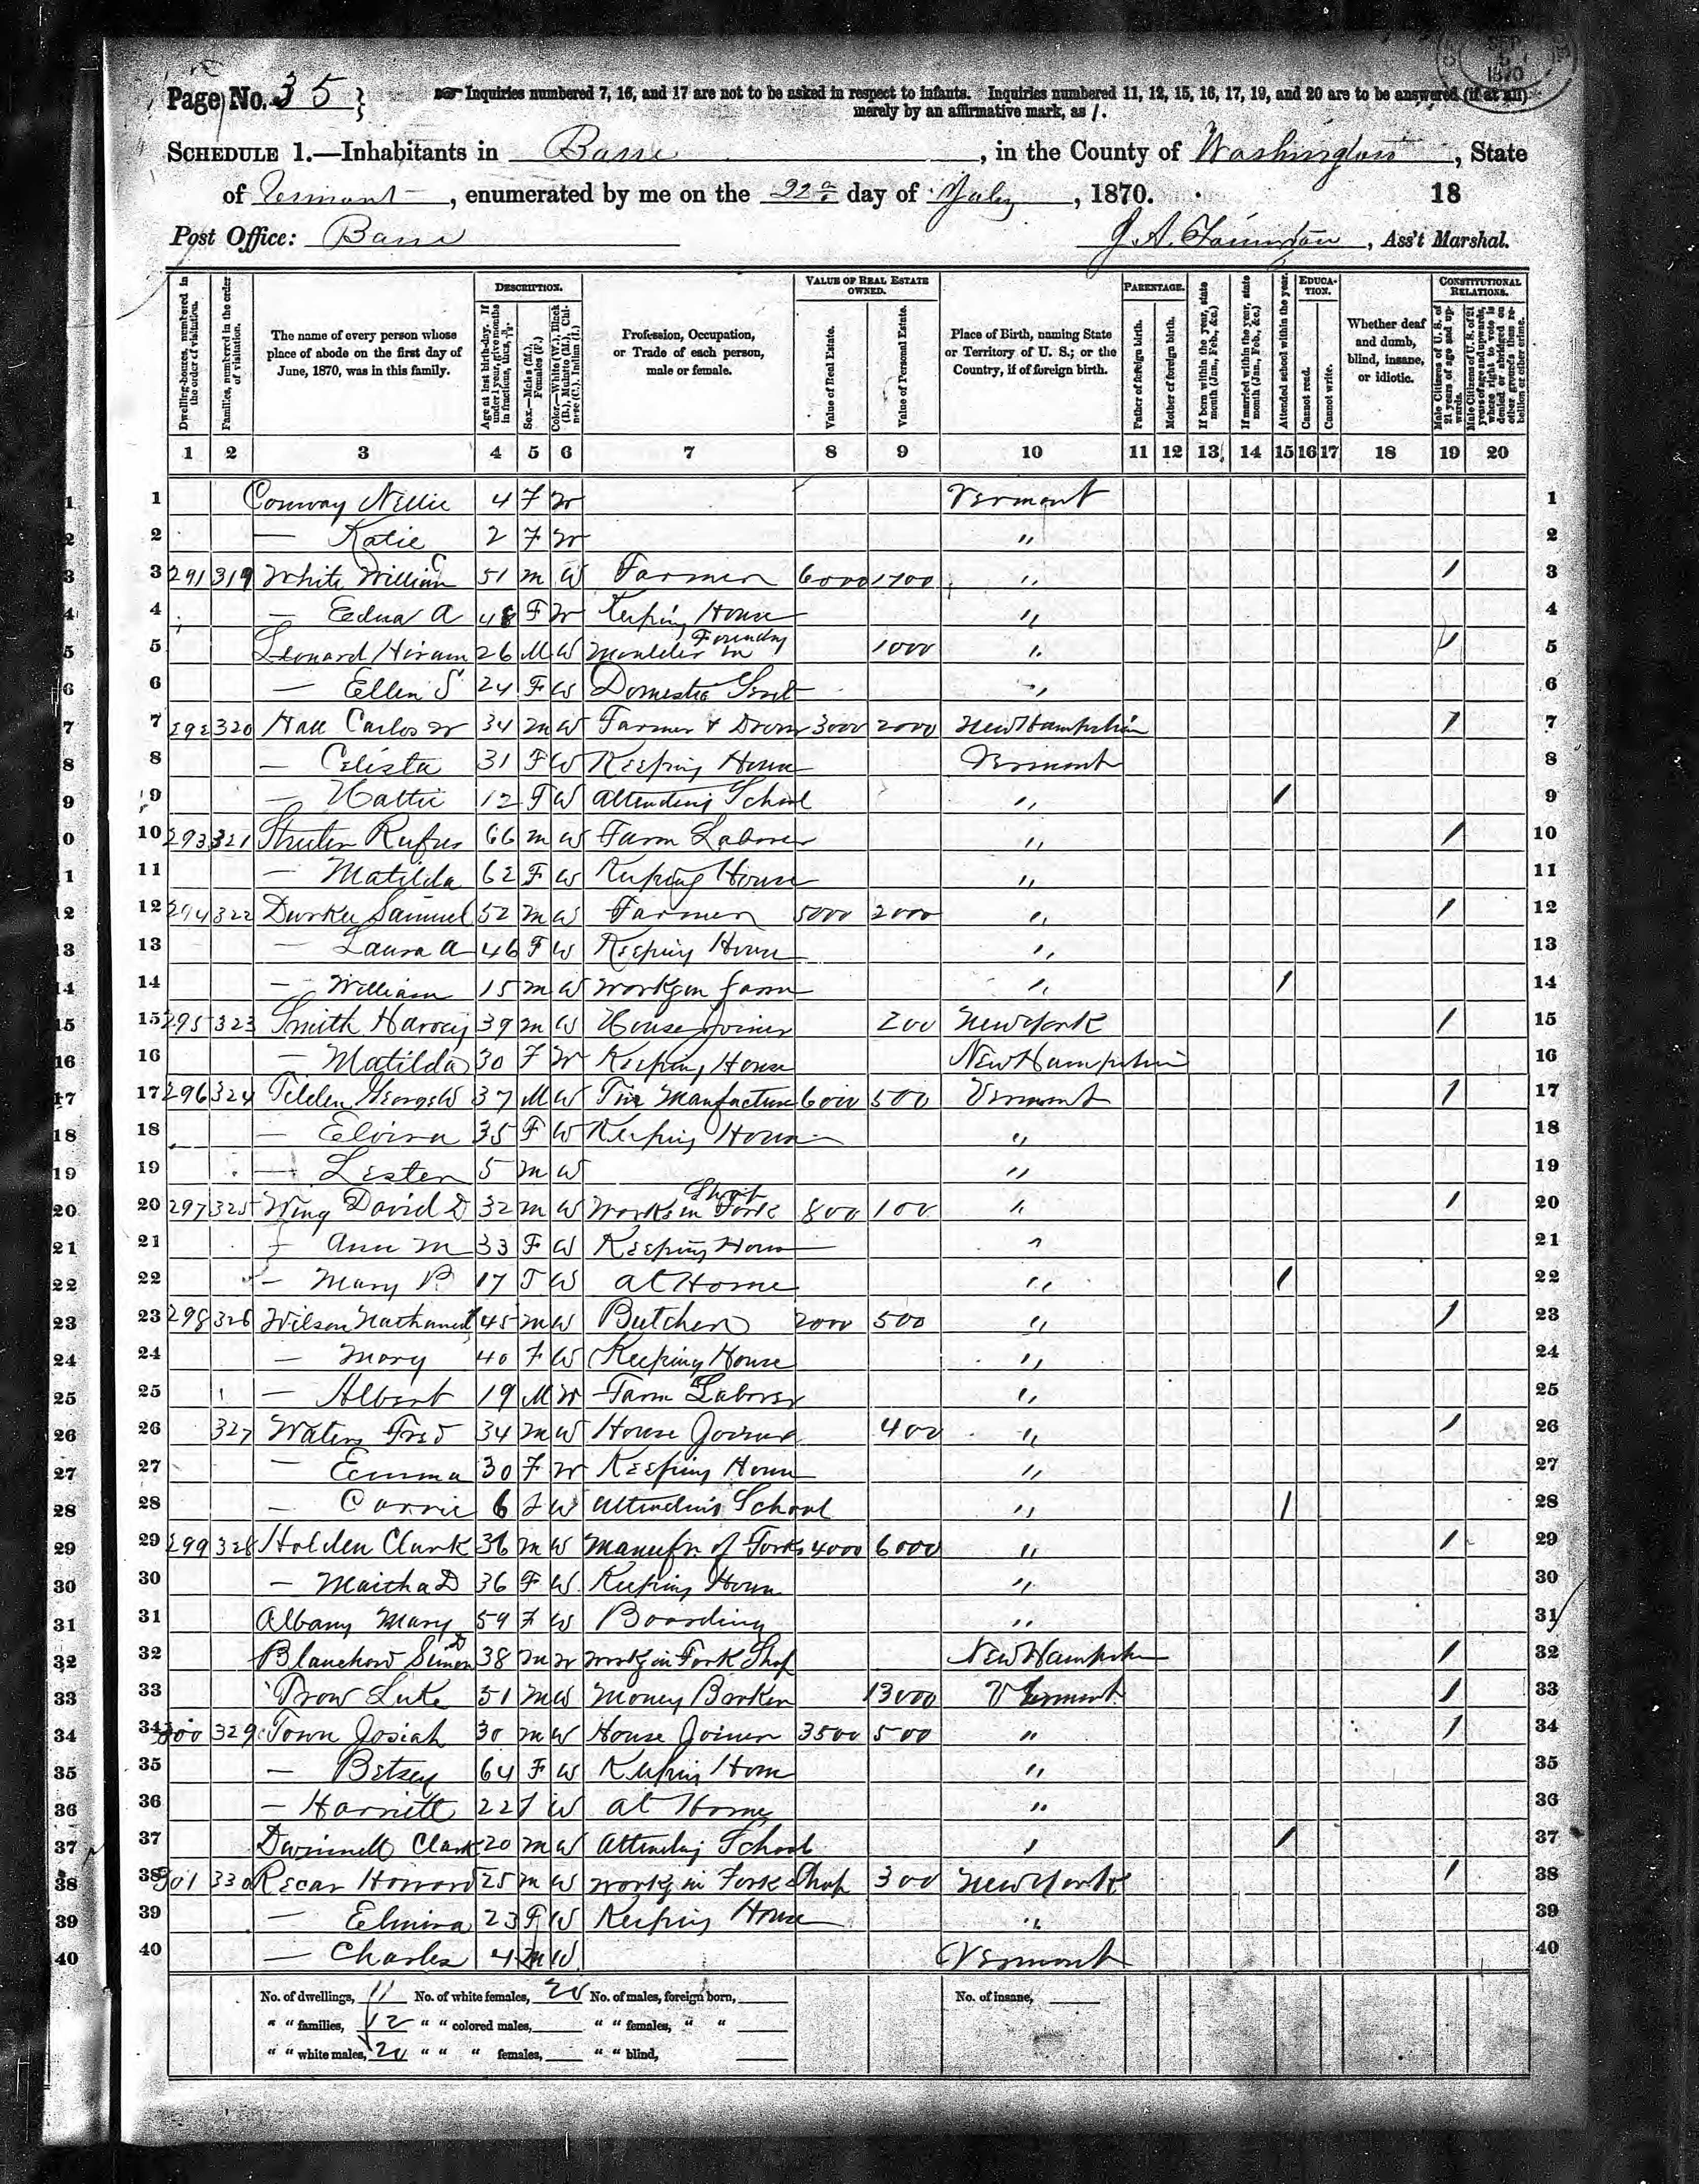 Page No. 35 } Inquiries numbered 7, 16, and 17 are not to be asked in respect to infants. Inquiries numbered 11, 12, 15, 16, 17, 19, and 20 are to be answered (if at all)
merely by an affirmative mark, as /.
SCHEDULE 1.—Inhabitants in Barre, in the County of Washington, State
of Vermont, enumerated by me on the 22d day of July, 1870. 18
Post Office: Barre J. A., Ass't Marshal.
SEP 1870
DESCRIPTION. VALUE OF REAL ESTATE OWNED. PARENTAGE. EDUCATION. CONSTITUTIONAL RELATIONS.
Dwelling-houses, numbered in the order of visitation.
Families, numbered in the order of visitation.
The name of every person whose place of abode on the first day of June, 1870, was in this family.
Age at last birth-day. If under 1 year, give months in fractions, thus, 3/12.
Sex.—Males (M.), Females (F.)
Color.—White (W.), Black (B.), Mulatto (M.), Chinese (C.), Indian (I.)
Profession, Occupation, or Trade of each person, male or female.
Value of Real Estate.
Value of Personal Estate.
Place of Birth, naming State or Territory of U. S.; or the Country, if of foreign birth.
Father of foreign birth.
Mother of foreign birth.
If born within the year, state month (Jan., Feb., &c.)
If married within the year, state month (Jan., Feb., &c.)
Attended school within the year.
Cannot read.
Cannot write.
Whether deaf and dumb, blind, insane, or idiotic.
Male Citizens of U. S. of 21 years of age and upwards.
Male Citizens of U. S. of 21 years of age and upwards, where right to vote is denied or abridged on other grounds than rebellion or other crime.
1 2 3 4 5 6 7 8 9 10 11 12 13 14 15 16 17 18 19 20
1 Conway Nellie 4 F W Vermont 1
2 — Katie 2 F W " 2
3 291 319 White William C 51 M W Farmer 6000 1700 " / 3
4 — Edna A 48 F W Keeping House " 4
5 Leonard Hiram 26 M W Moulder in Foundry 1000 " / 5
6 — Ellen S 24 F W Domestic Servt " 6
7 292 320 Hall Carlos W 34 M W Farmer & Drover 3000 2000 New Hampshire / 7
8 — Celista 31 F W Keeping House Vermont 8
9 — Hattie 12 F W Attending School " / 9
10 293 321 Rufus 66 M W Farm Laborer " / 10
11 — Matilda 62 F W Keeping House " 11
12 294 322 Durkee Samuel 52 M W Farmer 5000 2000 " / 12
13 — Laura A 46 F W Keeping House " 13
14 — William 15 M W Works on farm " / 14
15 295 323 Smith Harvey 39 M W House Joiner 200 New York / 15
16 — Matilda 30 F W Keeping House New Hampshire 16
17 296 324 Tilden George W 37 M W Tin Manufacture 6000 500 Vermont / 17
18 — Elvira 35 F W Keeping House " 18
19 — Lester 5 M W " 19
20 297 325 Wing David D 32 M W Works in Fork Shop 800 100 " / 20
21 — Ann M 33 F W Keeping House " 21
22 — Mary P. 17 F W at Home " / 22
23 298 326 Wilson Nathaniel 45 M W Butcher 2000 500 " / 23
24 — Mary 40 F W Keeping House " 24
25 — Albert 19 M W Farm Laborer " 25
26 327 Waters Fred 34 M W House Joiner 400 " / 26
27 — Emma 30 F W Keeping House " 27
28 — Carrie 6 F W Attending School " / 28
29 299 328 Holden Clark 36 M W Manufr. of Forks 4000 6000 " / 29
30 — Martha D 36 F W Keeping House " 30
31 Albany Mary 59 F W Boarding " 31
32 Blanchard Simon D 38 M W Works in Fork Shop New Hampshire / 32
33 Trow Luke 51 M W Money Broker 13000 Vermont / 33
34 300 329 Town Josiah 30 M W House Joiner 3500 500 " / 34
35 — Betsey 64 F W Keeping House " 35
36 — Harriett 22 F W at Home " 36
37 Dwinnell Clark 20 M W Attending School " / 37
38 301 330 Howard 25 M W Works in Fork Shop 300 New York / 38
39 — Elmira 23 F W Keeping House " 39
40 — Charles 4 M W Vermont 40
No. of dwellings, 11 No. of white females, 20 No. of males, foreign born, No. of insane,
" " families, 12 " " colored males, " " females, " "
" " white males, 20 " " " females, " " blind,